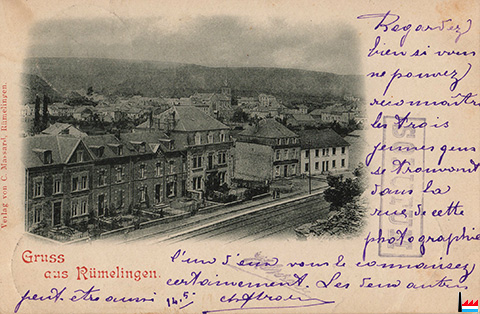 Regardez
bien si vous
ne pouvez
reconnaître
les trois
jeunes gens
se trouvant
dans la
rue de cette
photographie
l'un d'eux vous le connaissez
certainement. Les deux autres
peut-être aussi 14.5
Gruss
aus Rümelingen.
Verlag von C. Massard, Rümelingen.